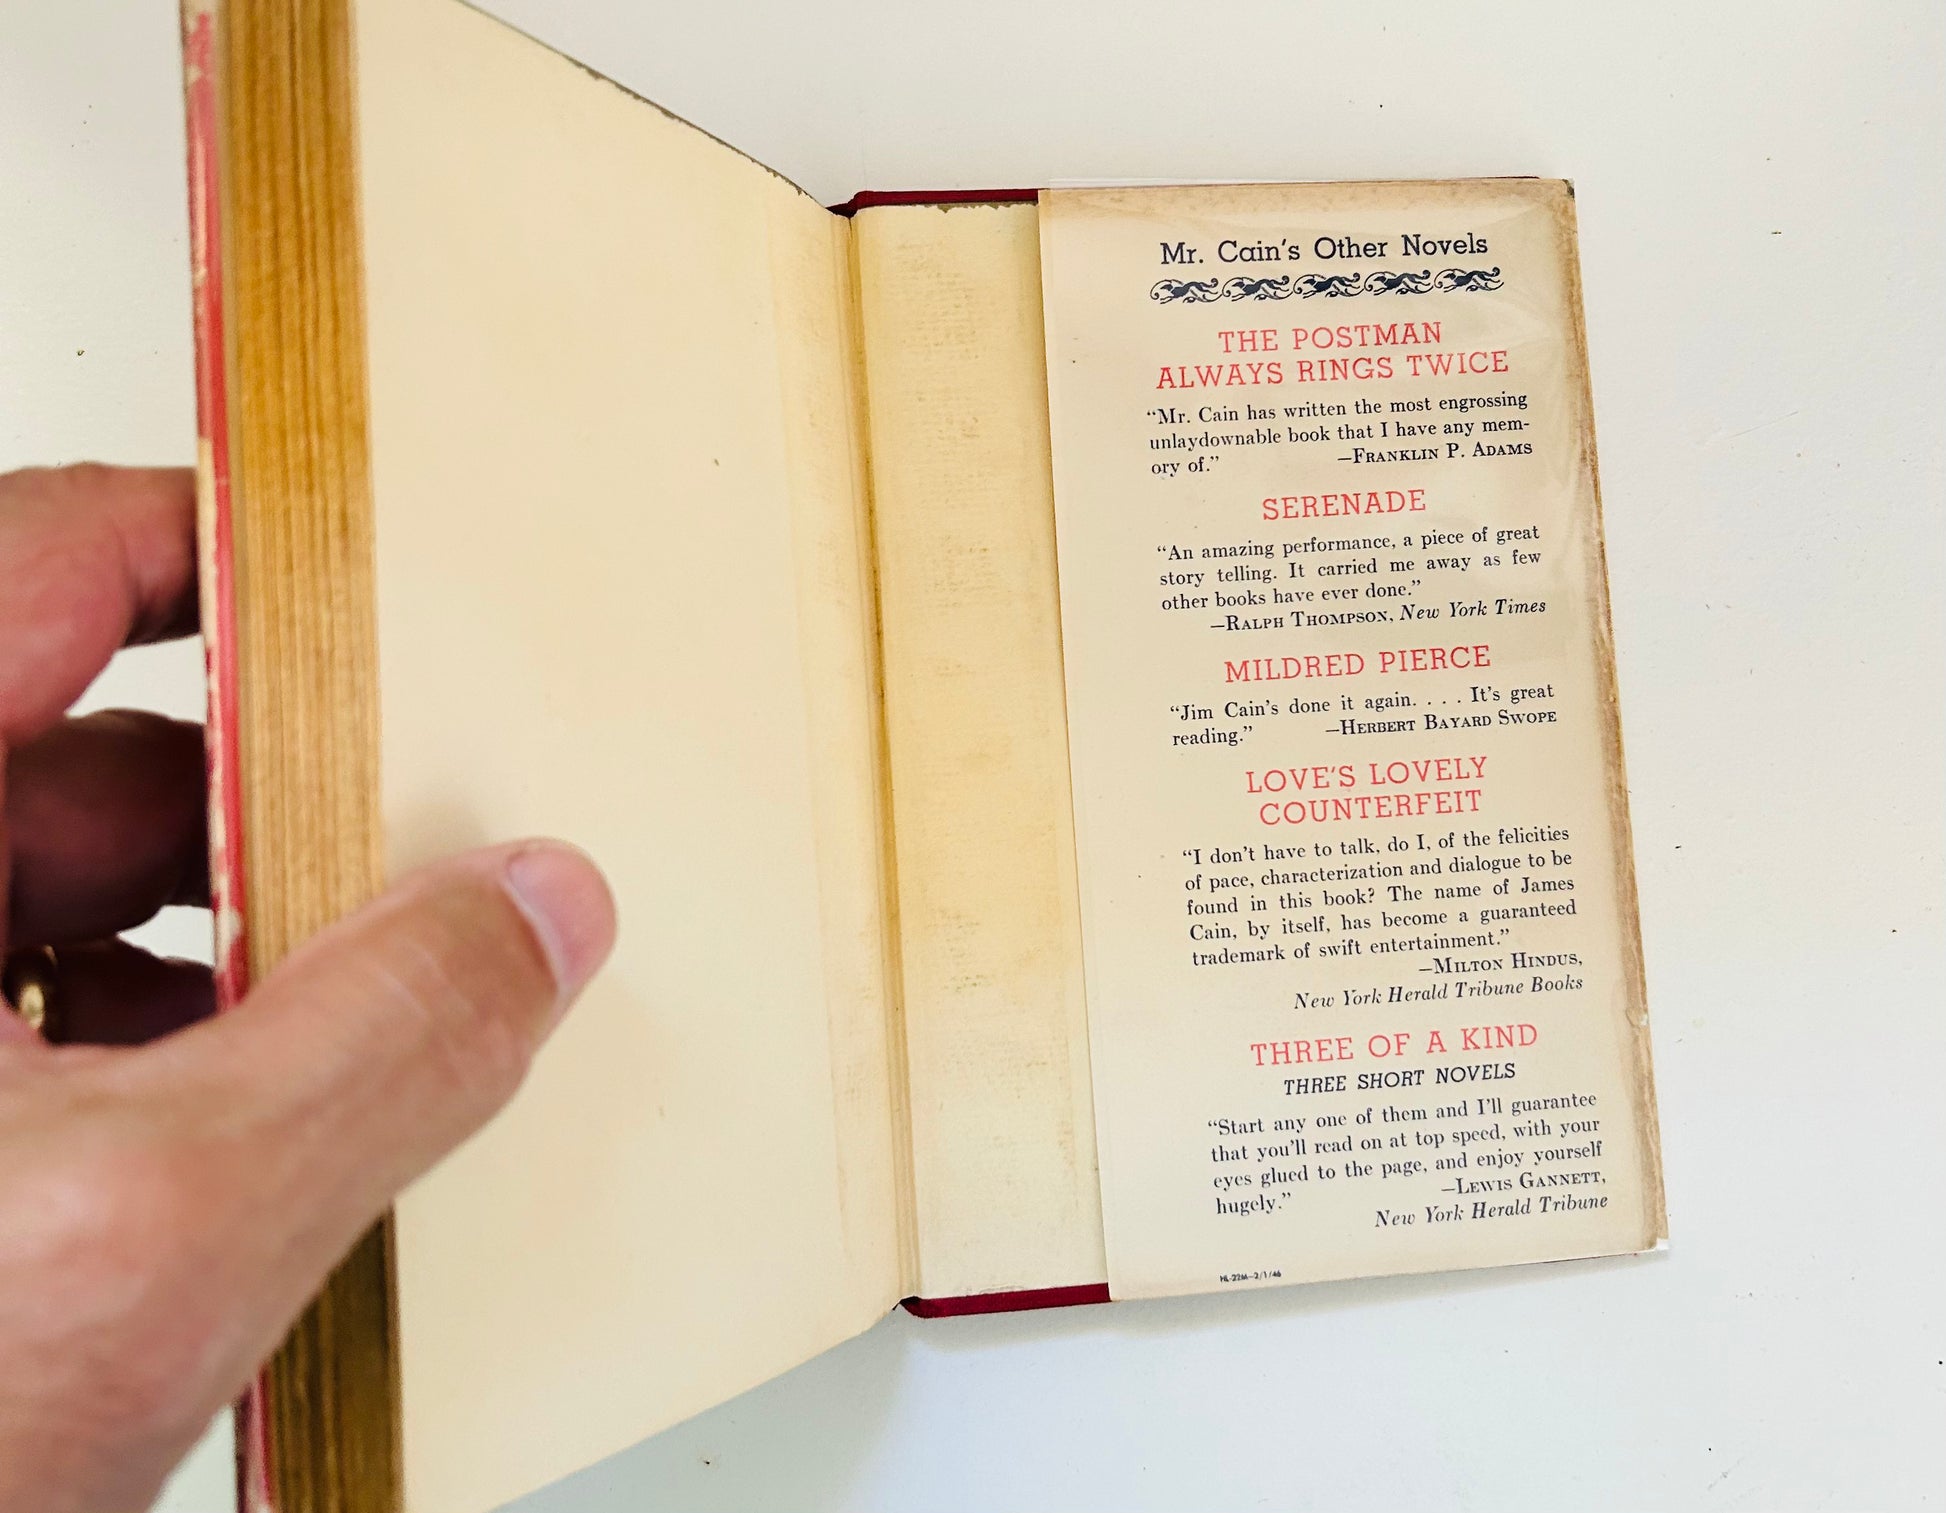 Mr. Cain's Other Novels
THE POSTMAN
ALWAYS RINGS TWICE
“Mr. Cain has written the most engrossing
unlaydownable book that I have any mem-
ory of.” —FRANKLIN P. ADAMS
SERENADE
“An amazing performance, a piece of great
story telling. It carried me away as few
other books have ever done.”
—RALPH THOMPSON, New York Times
MILDRED PIERCE
“Jim Cain's done it again. . . . It's great
reading.” —HERBERT BAYARD SWOPE
LOVE'S LOVELY
COUNTERFEIT
“I don't have to talk, do I, of the felicities
of pace, characterization and dialogue to be
found in this book? The name of James
Cain, by itself, has become a guaranteed
trademark of swift entertainment.”
—MILTON HINDUS,
New York Herald Tribune Books
THREE OF A KIND
THREE SHORT NOVELS
“Start any one of them and I'll guarantee
that you'll read on at top speed, with your
eyes glued to the page, and enjoy yourself
hugely.” —LEWIS GANNETT,
New York Herald Tribune
HL-22M—2/1/46